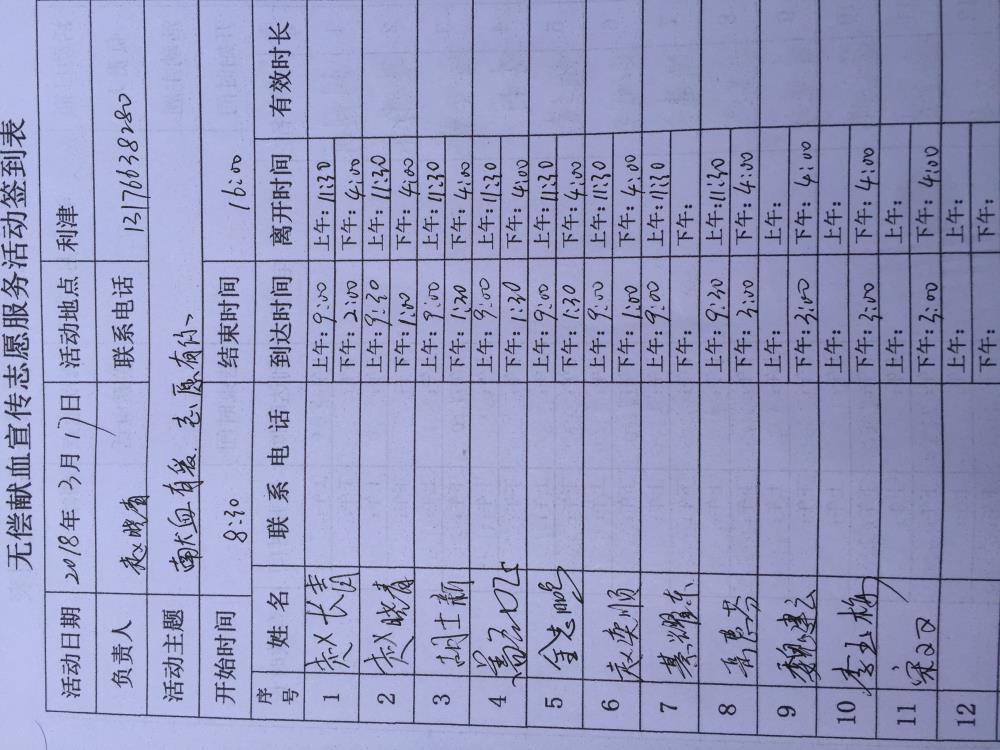 无偿献血宣传志愿服务活动签到表
活动日期 2018年3月17日 活动地点 利津
负责人 赵晓春 联系电话 13176638280
活动主题 献血有爱 志愿有你
开始时间 8:30 结束时间 16:00
序号 姓名 联系电话 到达时间 离开时间 有效时长
1 赵长青 上午:9:00 上午:11:30
下午:2:00 下午:4:00
2 赵晓春 上午:9:30 上午:11:30
下午:1:00 下午:4:00
3 胡士新 上午:9:00 上午:11:30
下午:1:30 下午:4:00
4 上午:9:00 上午:11:30
下午:1:30 下午:4:00
5 金志鹏 上午:9:00 上午:11:30
下午:1:30 下午:4:00
6 赵奕顺 上午:9:00 上午:11:30
下午:1:00 下午:4:00
7 綦耀东 上午:9:00 上午:11:30
下午: 下午:
8 上午:9:30 上午:11:30
下午:3:00 下午:4:00
9 魏建云 上午: 上午:
下午:3:00 下午:4:00
10 李玉梅 上午: 上午:
下午:3:00 下午:4:00
11 上午: 上午:
下午:3:00 下午:4:00
12 上午: 上午:
下午: 下午: